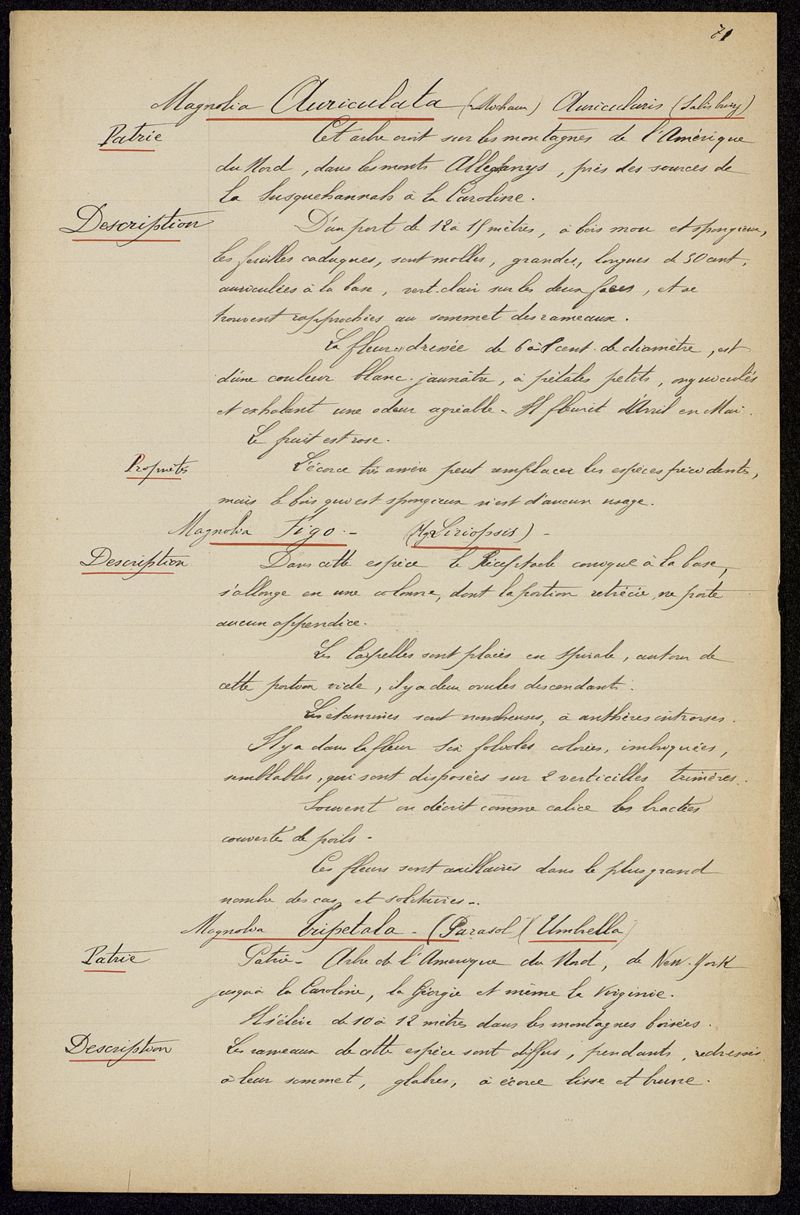 71
Magnolia Auriculata (Michaux) Auricularis (Salisbury)
Patrie Cet arbre croit sur les montagnes de l'Amérique
du Nord, dans les monts Alleghanys, près des sources de
la Susquehannah à la Caroline.
Description D'un port de 12 à 15 mètres, à bois mou et spongieux,
les feuilles caduques, sont molles, grandes, longues de 30 cent,
auriculées à la base, vert clair sur les deux faces, et se
trouvent rapprochées au sommet des rameaux.
La fleur dressée de 6 à 8 cent. de diamètre, est
d'une couleur blanc-jaunâtre, à pétales petits, onguiculés
et exhalant une odeur agréable - Il fleurit d'Avril en Mai.
Le fruit est rose.
Propriétés L'écorce très amère peut remplacer les espèces précédentes,
mais le bois qui est spongieux n'est d'aucun usage.
Magnolia Figo.- (Mg Liriopsis) -
Description Dans cette espèce le Réceptacle conique à la base,
s'allonge en une colonne, dont la portion rétrécie, ne porte
aucun appendice.
Les Carpelles sont placés en spirale, autour de
cette portion vide, il y a deux ovules descendants.
Les étamines sont nombreuses, à anthères introrses.
Il y a dans la fleur six folioles colorées, imbriquées,
semblables, qui sont disposées sur 2 verticilles trimères.
Souvent on décrit comme calice les bractées
couvertes de poils -
Ces fleurs sont axillaires dans le plus grand
nombre des cas, et solitaires -.
Magnolia Tripetala - (Parasol) (Umbrella)
Patrie Patrie - Arbre de l'Amérique du Nord, de New-York
jusqu'à la Caroline, la Géorgie et même la Virginie.
Il s'élève de 10 à 12 mètres dans les montagnes boisées.
Description Les rameaux de cette espèce sont diffus, pendants, redressés
à leur sommet, glabres, à écorce lisse et brune.